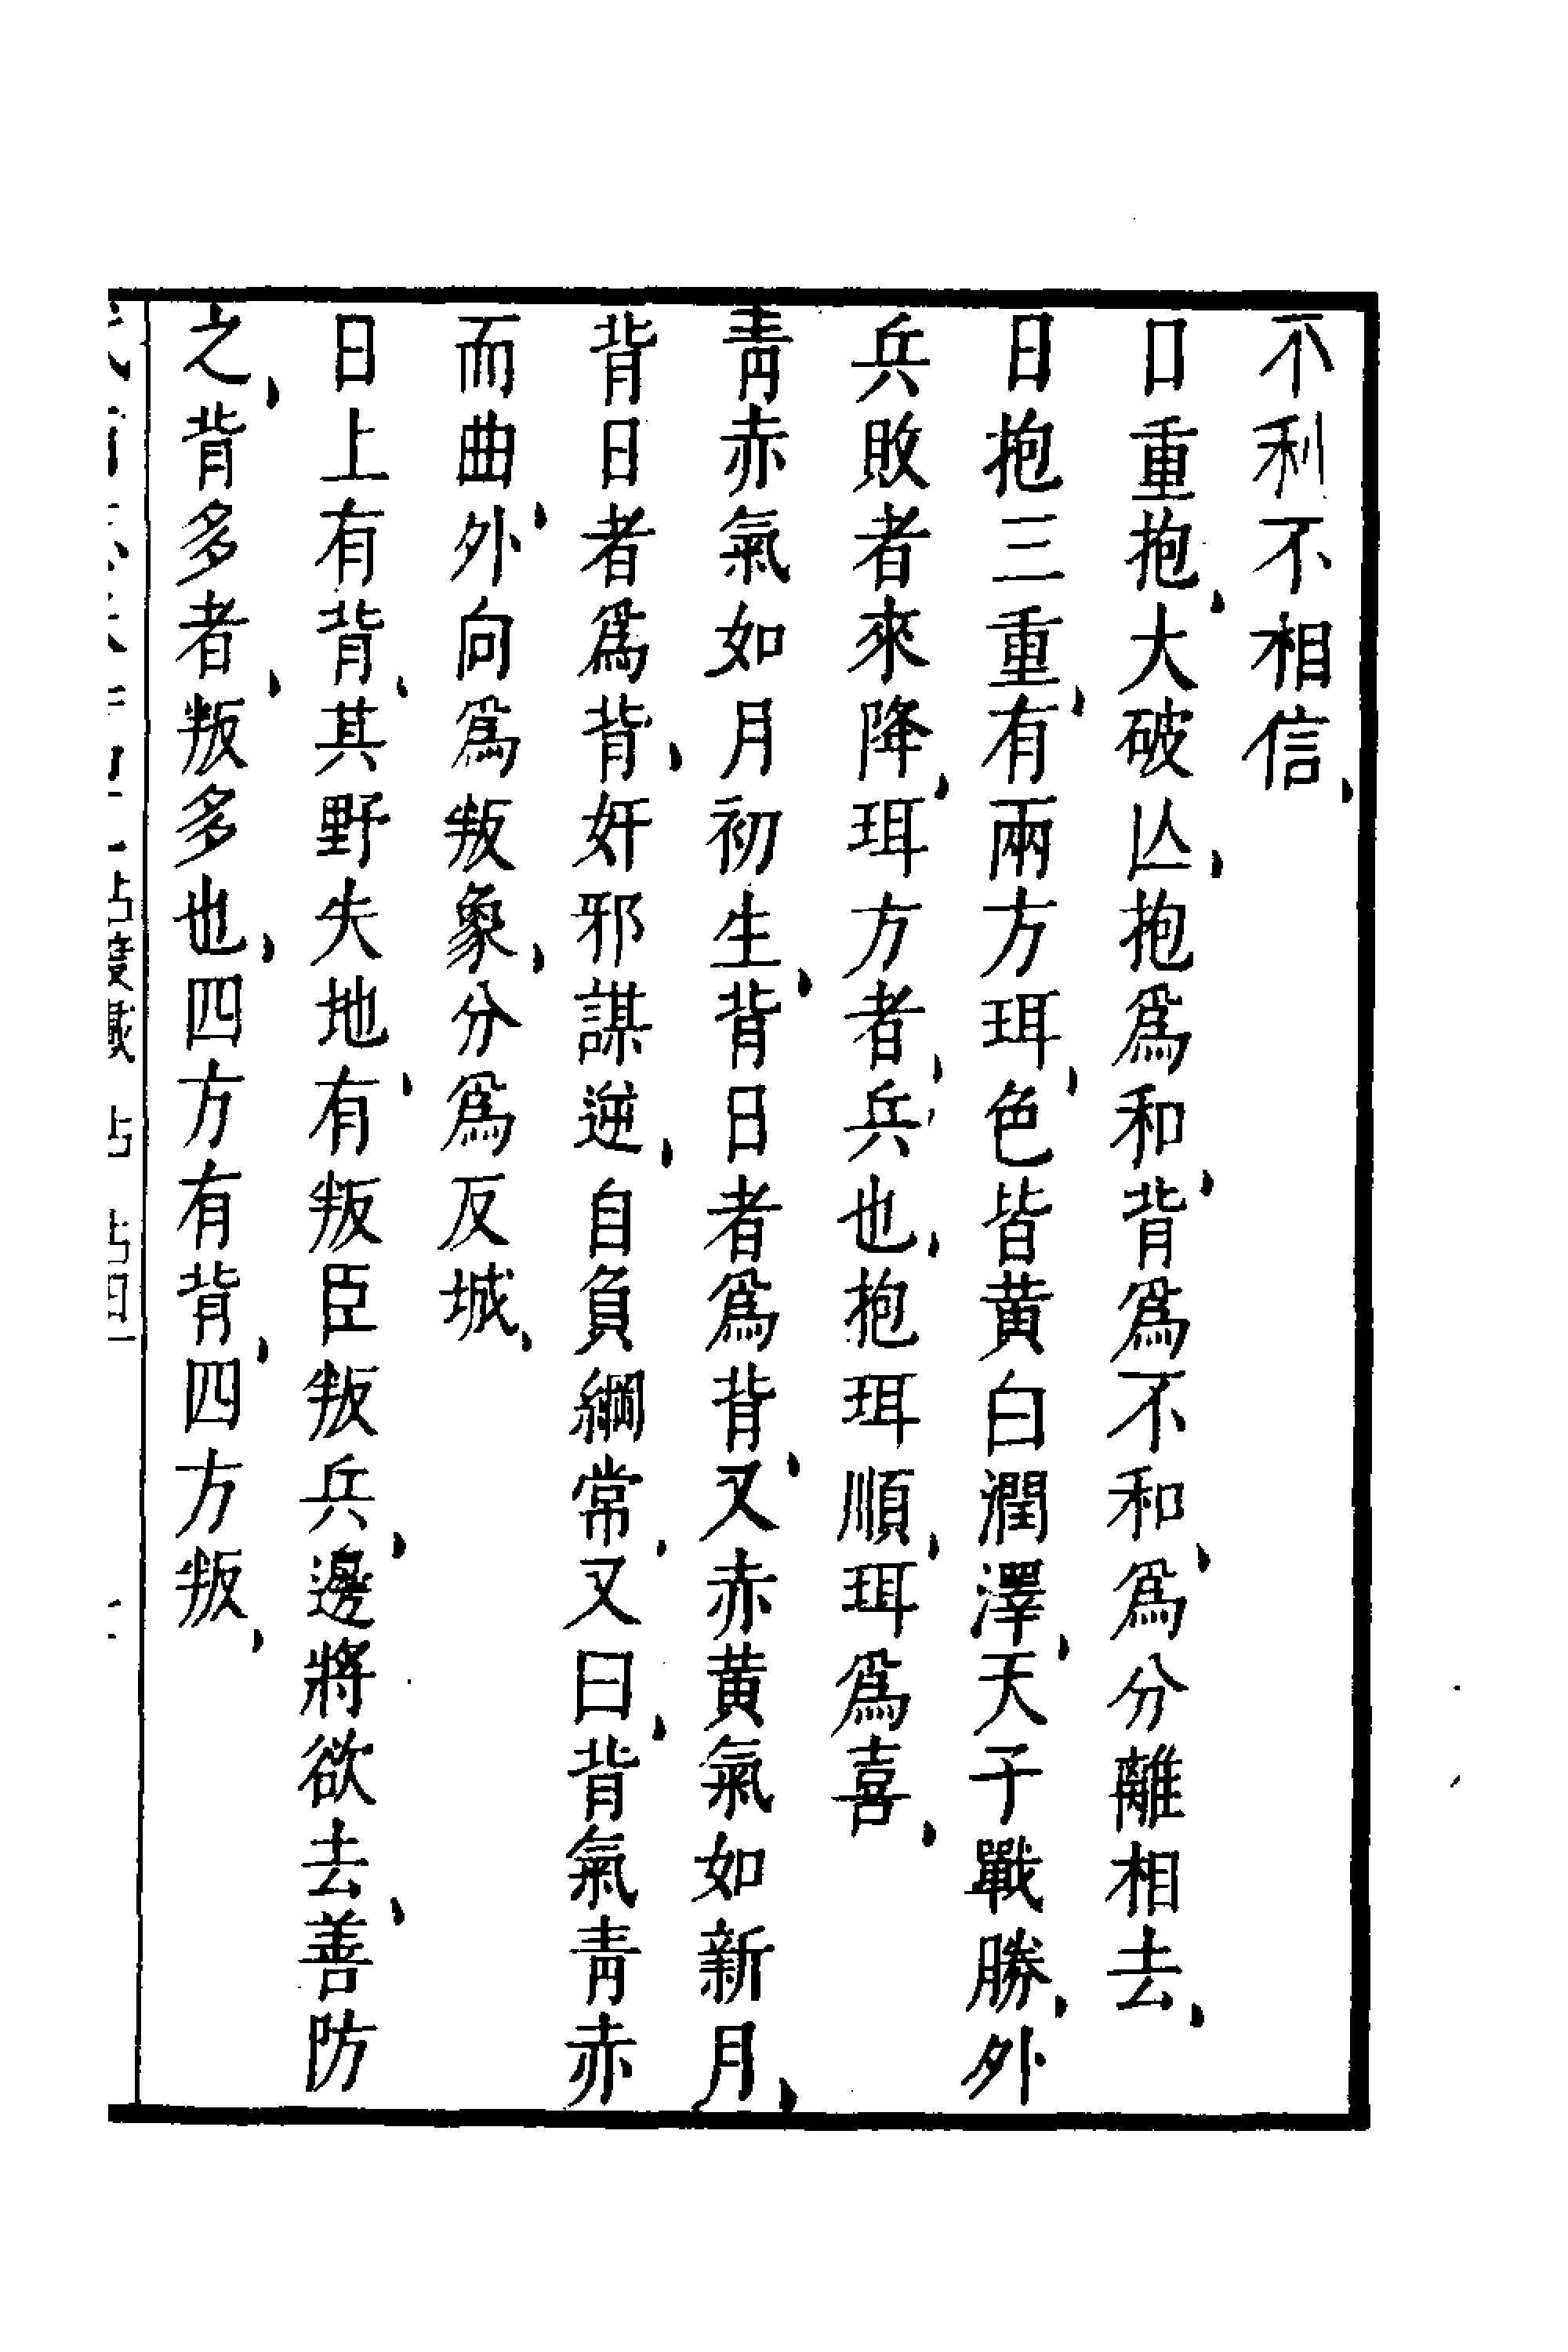 不利不相信、
日重抱、大破亾、抱爲和、背爲不和、爲分離相去、
日抱三重、有兩方珥、色皆黃白潤澤、天子戰勝、外
兵敗者來降、珥方者、兵也、抱珥順、珥爲喜、
靑赤氣如月初生、背日者爲背、又赤黃氣如新月、
背日者爲背、奸邪謀逆、自負綱常、又曰、背氣靑赤
而曲、外向爲叛象、分爲反城、
日上有背、其野失地、有叛臣叛兵、邊將欲去、善防
之、背多者、叛多也、四方有背、四方叛、